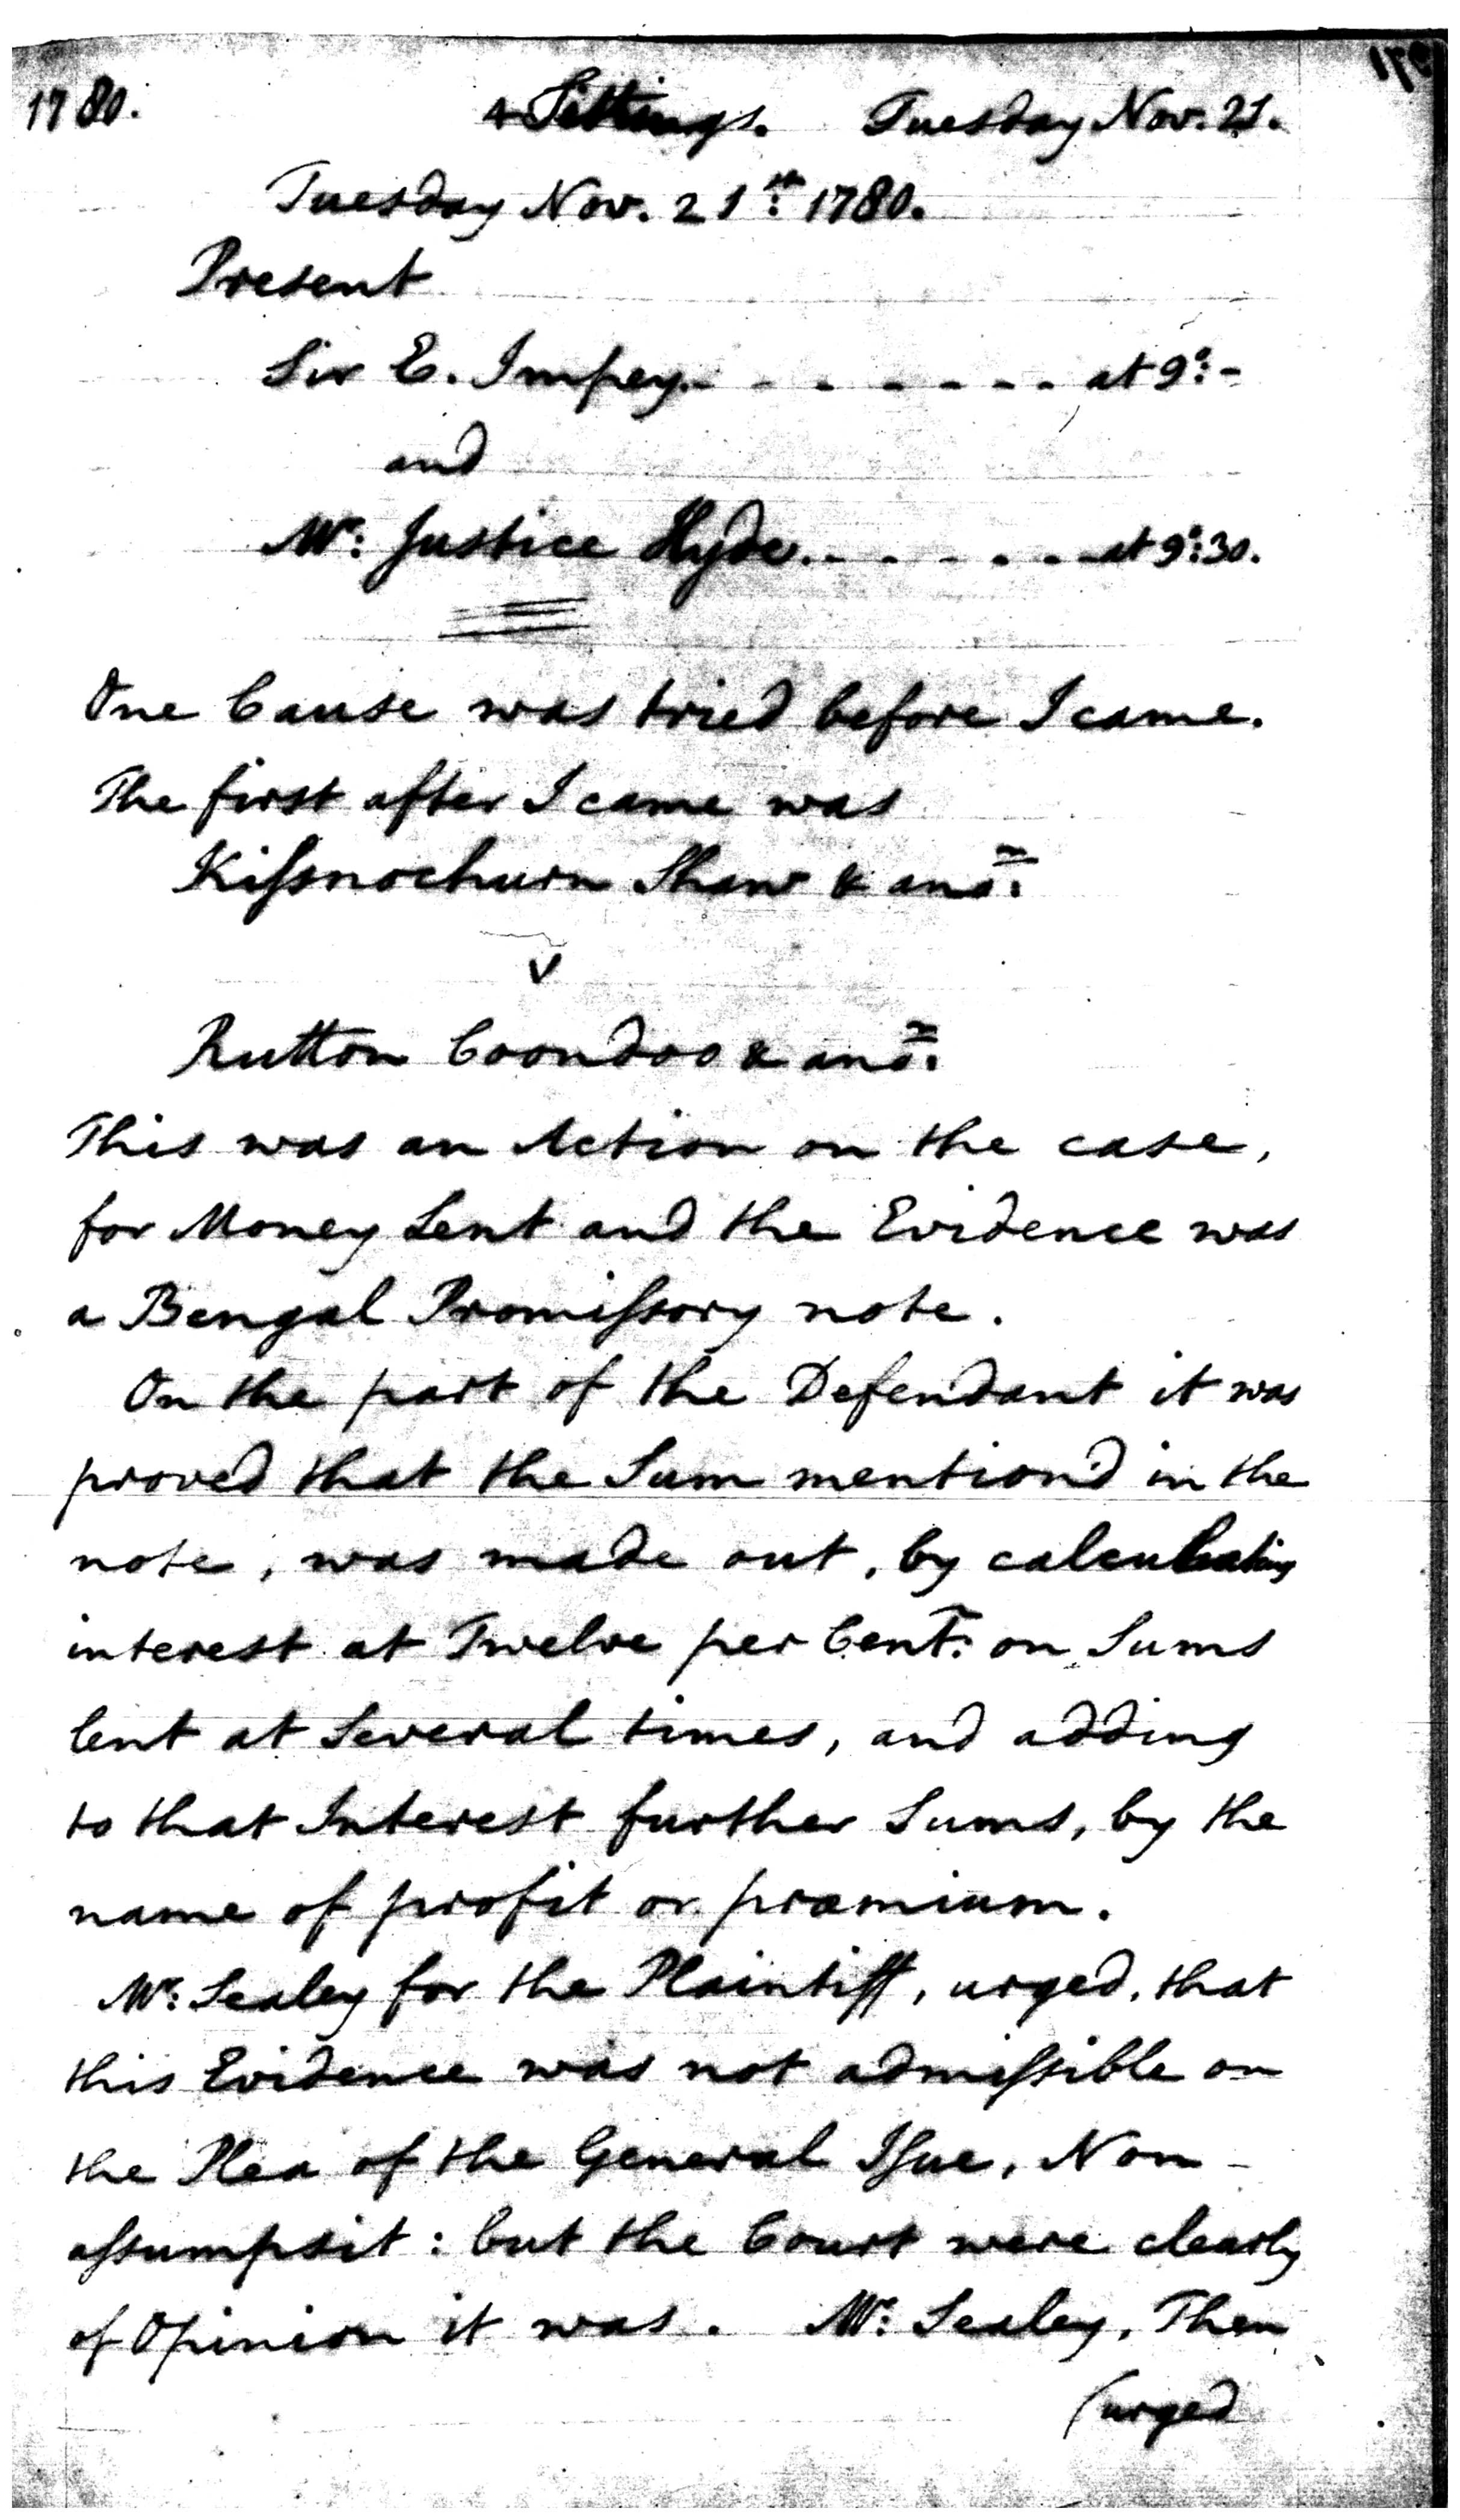 1780. 4 Sittings. Tuesday Nov. 21.
Tuesday Nov. 21st: 1780.
Present
Sir E. Impey. - - - - - - - at 9°: -
and
Mr: Justice Hyde. - - - - - - at 9°: 30.
One Cause was tried before I came.
The first after I came was
Kiſsnochurn Shaw & anor:
v
Rutton Coondoo & anor:
This was an Action on the case,
for Money Lent and the Evidence was
a Bengal Promiſsory note.
On the part of the Defendant it was
proved that the Sum mention'd in the
note, was made out, by calculating
interest at Twelve per Cent: on Sums
lent at Several times, and adding
to that Interest further Sums, by the
name of profit or præmium.
Mr: Sealey for the Plaintiff, urged, that
this Evidence was not admiſsible on
the Plea of the General Iſsue, Non-
aſsumpsit: but the Court were clearly
of Opinion it was. Mr: Sealey, Then
(urged